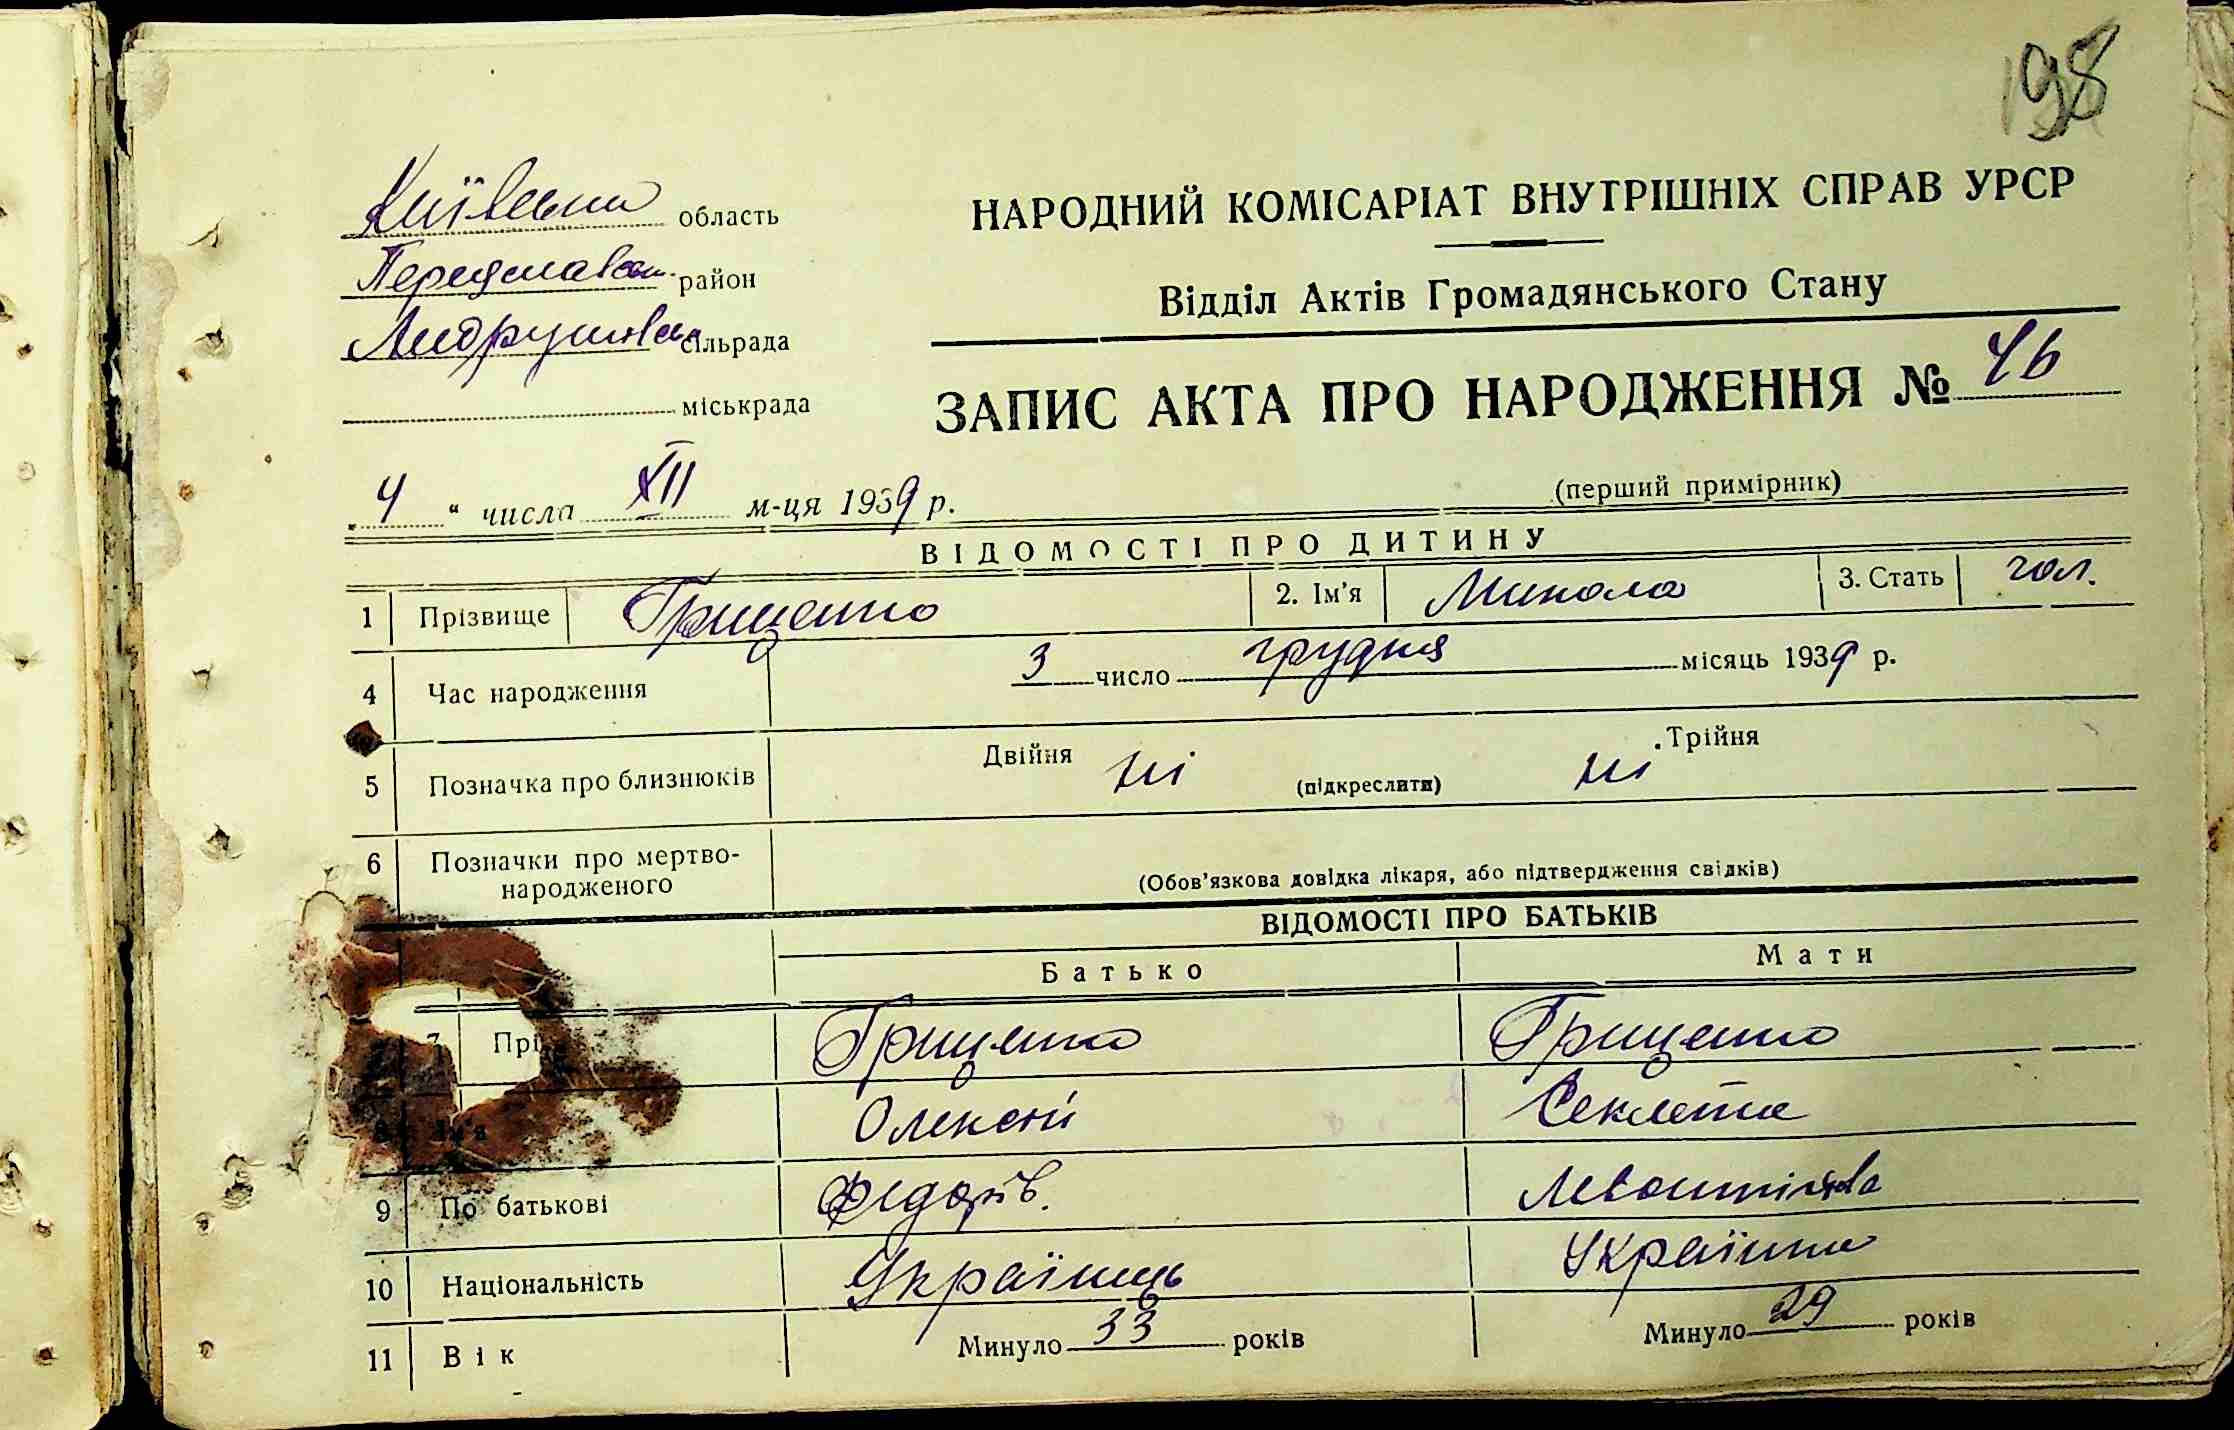 198
Київська область
Переяславськ. район
Андрушівськ сільрада
міськрада
НАРОДНИЙ КОМІСАРІАТ ВНУТРІШНІХ СПРАВ УРСР
Відділ Актів Громадянського Стану
ЗАПИС АКТА ПРО НАРОДЖЕННЯ № 46
„ 4 " числа XII м-ця 1939 р.
(перший примірник)
ВІДОМОСТІ ПРО ДИТИНУ
1 Прізвище Грищенко 2. Ім'я Микола 3. Стать чол.
4 Час народження 3 число грудня місяць 1939 р.
5 Позначка про близнюків Двійня ні (підкреслити) ні Трійня
6 Позначки про мертво-
народженого
(Обов'язкова довідка лікаря, або підтвердження свідків)
ВІДОМОСТІ ПРО БАТЬКІВ
Батько Мати
7 Прі Грищенко Грищенко
8 Ім'я Олексій Секлета
9 По батькові Федорів.
10 Національність Українець Українка
11 Вік Минуло 33 років Минуло 29 років